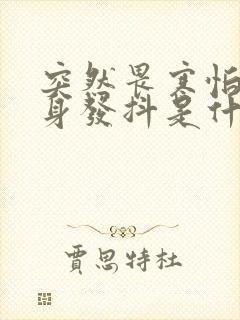 突然畏寒怕
身發抖是什
賈思特杜